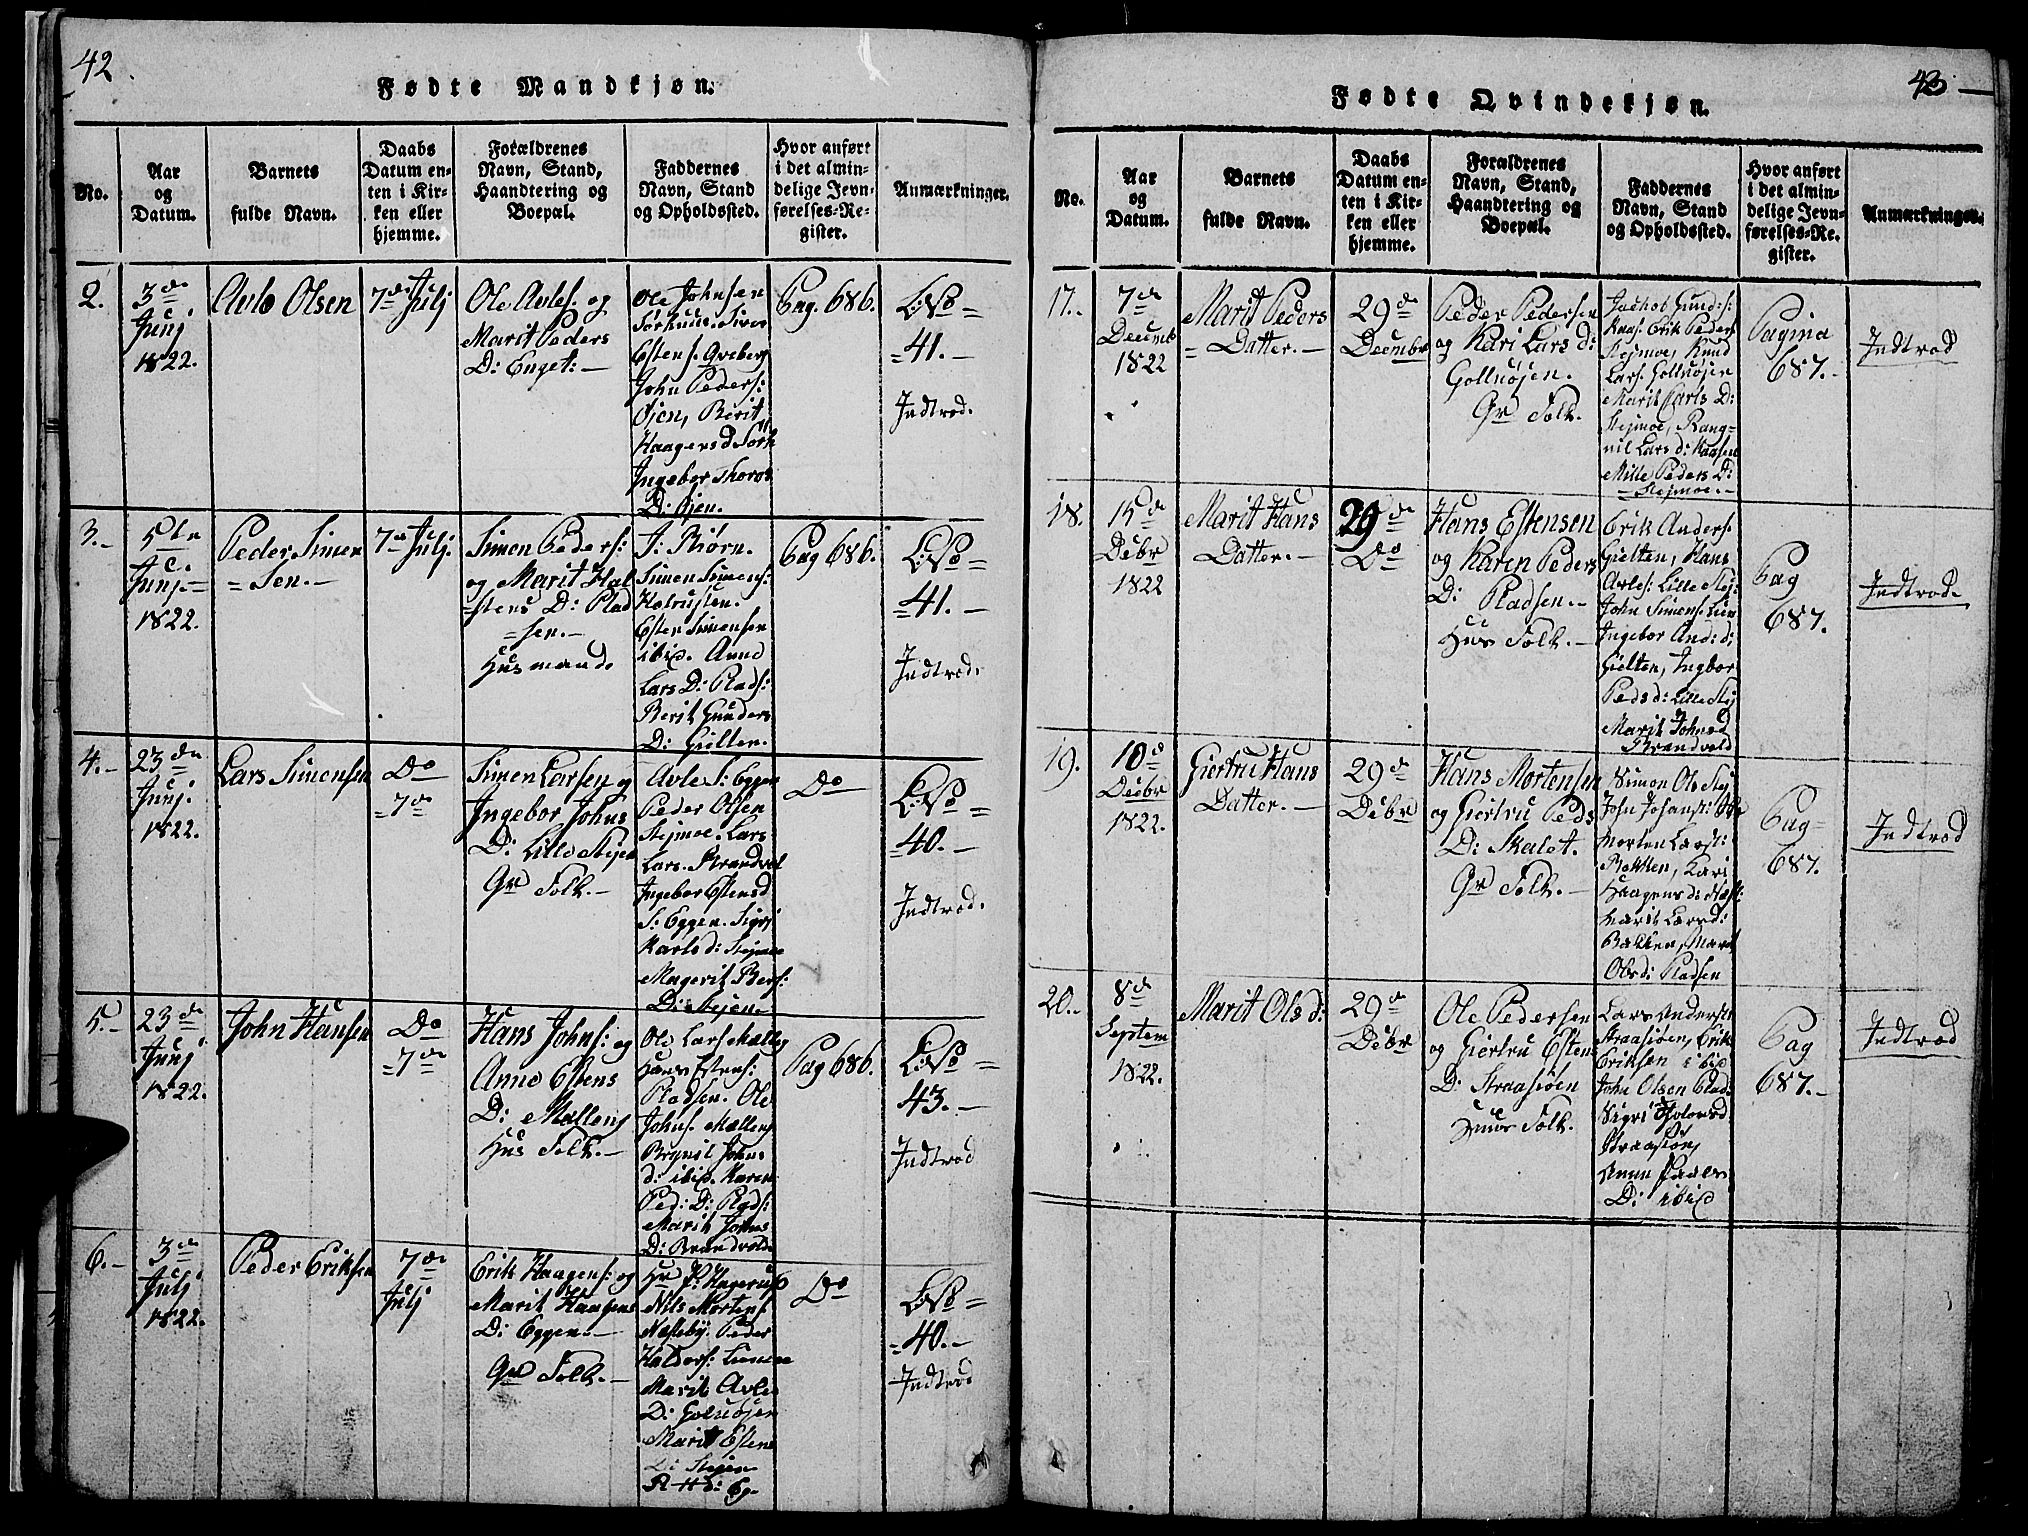 42.
Fødte Mandkjøn.
No.
Aar
og
Datum.
Barnets
fulde Navn.
Daabs
Datum en-
ten i Kir-
ken eller
hjemme.
Forældrenes
Navn, Stand,
Haandtering og
Boepæl.
Faddernes
Navn, Stand
og Opholdssted.
Hvor anført
i det almin-
delige Jevn-
førelses-Re-
gister.
Anmærkninger.
2.
3de
Junj
1822.
Avlo Olsen
7de Julj
Ole Avles. og
Marit Peders
D: Enget: –
Ole Johnsen
Estens.
John Peders:
Øjen, Berit
Haagens d
Ingebor Thoros
D: Øjen.
Pag. 686.
L: No =
= 41. –
Indtrod.
3. –
5te
Junj. –
1822.
Peder Simen
= Sen. –
7de Julj.
Simon Peders:
og Marit Hal
= stens D: Plad
= sen. –
Husmand.
J. Biørn.
Simen Simens:
Esten Simensen
ibid. Anne
Lars D: Plads:
Berit Gunders
D: Gielten.
Pag 686.
L: No =
= 41. –
Indtrod.
4. –
23de
Junj.
1822.
Lars Simensen
Do
= 7de
Simen Larsen og
Ingebor Johns
D: Lille Stejen
Gr Folk. –
Avle S: Eggen
Peder Olsen
Stejmoe. Lars
Lars. Strandvol
Ingebor Estensd
S: Eggen. Sigri
Karls d: Stejmoe
Magerit Bers:
D: Stejen.
Do
L: No =
= 40. –
Indtrod.
5. –
23de
Junj
1822.
John Hansen
Do
= 7de
Hans Johns: og
Anne Estens
D: Mælleng
Hus Folk. –
Ole Lars Mælleg
Hans Estens:
Pladsen. Ole
Johns. Mælleng
Brynil Johns
d: ibid. Karen
Ped: D: Plads:
Marit Johns
D: Brandvold
Pag 686.
L: No =
43. –
Indtrod
6. –
3de
Julj
1822.
Peder Eriksen
7de
Julj
Erik Haagens: og
Marit Haagens
D: Eggen. –
Gr Folk. –
Hr P: Hagerup
Nils Mortens
Næsteby. Peder
Haldors:
Marit Avle
D: Goluøjen
Marit Estens
D: Stejen
Do
L: No =
= 40. –
Indtrod
43 –
Fødte Qvindekjøn.
No.
Aar
og
Datum.
Barnets
fulde Navn.
Daabs
Datum en-
ten i Kir-
ken eller
hjemme.
Forældrenes
Navn, Stand,
Haandtering og
Boepæl.
Faddernes
Navn, Stand
og Opholdssted.
Hvor anført
i det almin-
delige Jevn-
førelses-Re-
gister.
Anmærkninger.
17. –
7de
Decemb
1822
Marit Peders
= Datter. –
29de
Decembr
Peder Pedersen
og Kari Lars d:
Golluøjen.
Gr Folk.
Jachob Gunds:
Kaas. Erik Peders
Stejmoe, Knud
Lars. Golluøjen
Marit Carls D:
Stejmoe, Rang=
nil Lars d: Kaasen
Mille Peders D:
= Stejmoe. –
Pagina
687. –
Indtrod
18.
15de
Debr
1822
Marit Hans
Datter. –
29de
Do
Hans Estensen
og Karen Peders
D: Pladsen. –
Hus Folk. –
Erik Anders:
Gielten, Hans
Avles: Lille Stej:
John Simens:
Ingebor And: d:
Gielten, Ingbor
Peds d: Lille Stej
Marit Johnsd
Brandvold
Pag
687.
Indtrod.
19.
10d
Debr
1822.
Giertru Hans
Datter. –
29de
Debr
Hans Mortensen
og Giertru Peds
D: Skalet.
Gr Folk. –
Simon Ols Stej
John Johans:
Morten Lars:
Bakken, Kari
Haagens d:
Marit Lars d:
Bakken, Marit
Ols d: Pladsen
Pag=
687.
Indtrod
20. –
8de
Septem
1822.
Marit Ols d:
29de
Debr
Ole Pedersen
og Giertru Estens
D: Straasiøen
Huus Folk.
Lars Anders:
Straasiøen, Erik
Eriksen ibid
John Olsen Plad:
Sigri
Straasiøen,
Anne
D: ibid
Pag
687. –
Indtrod